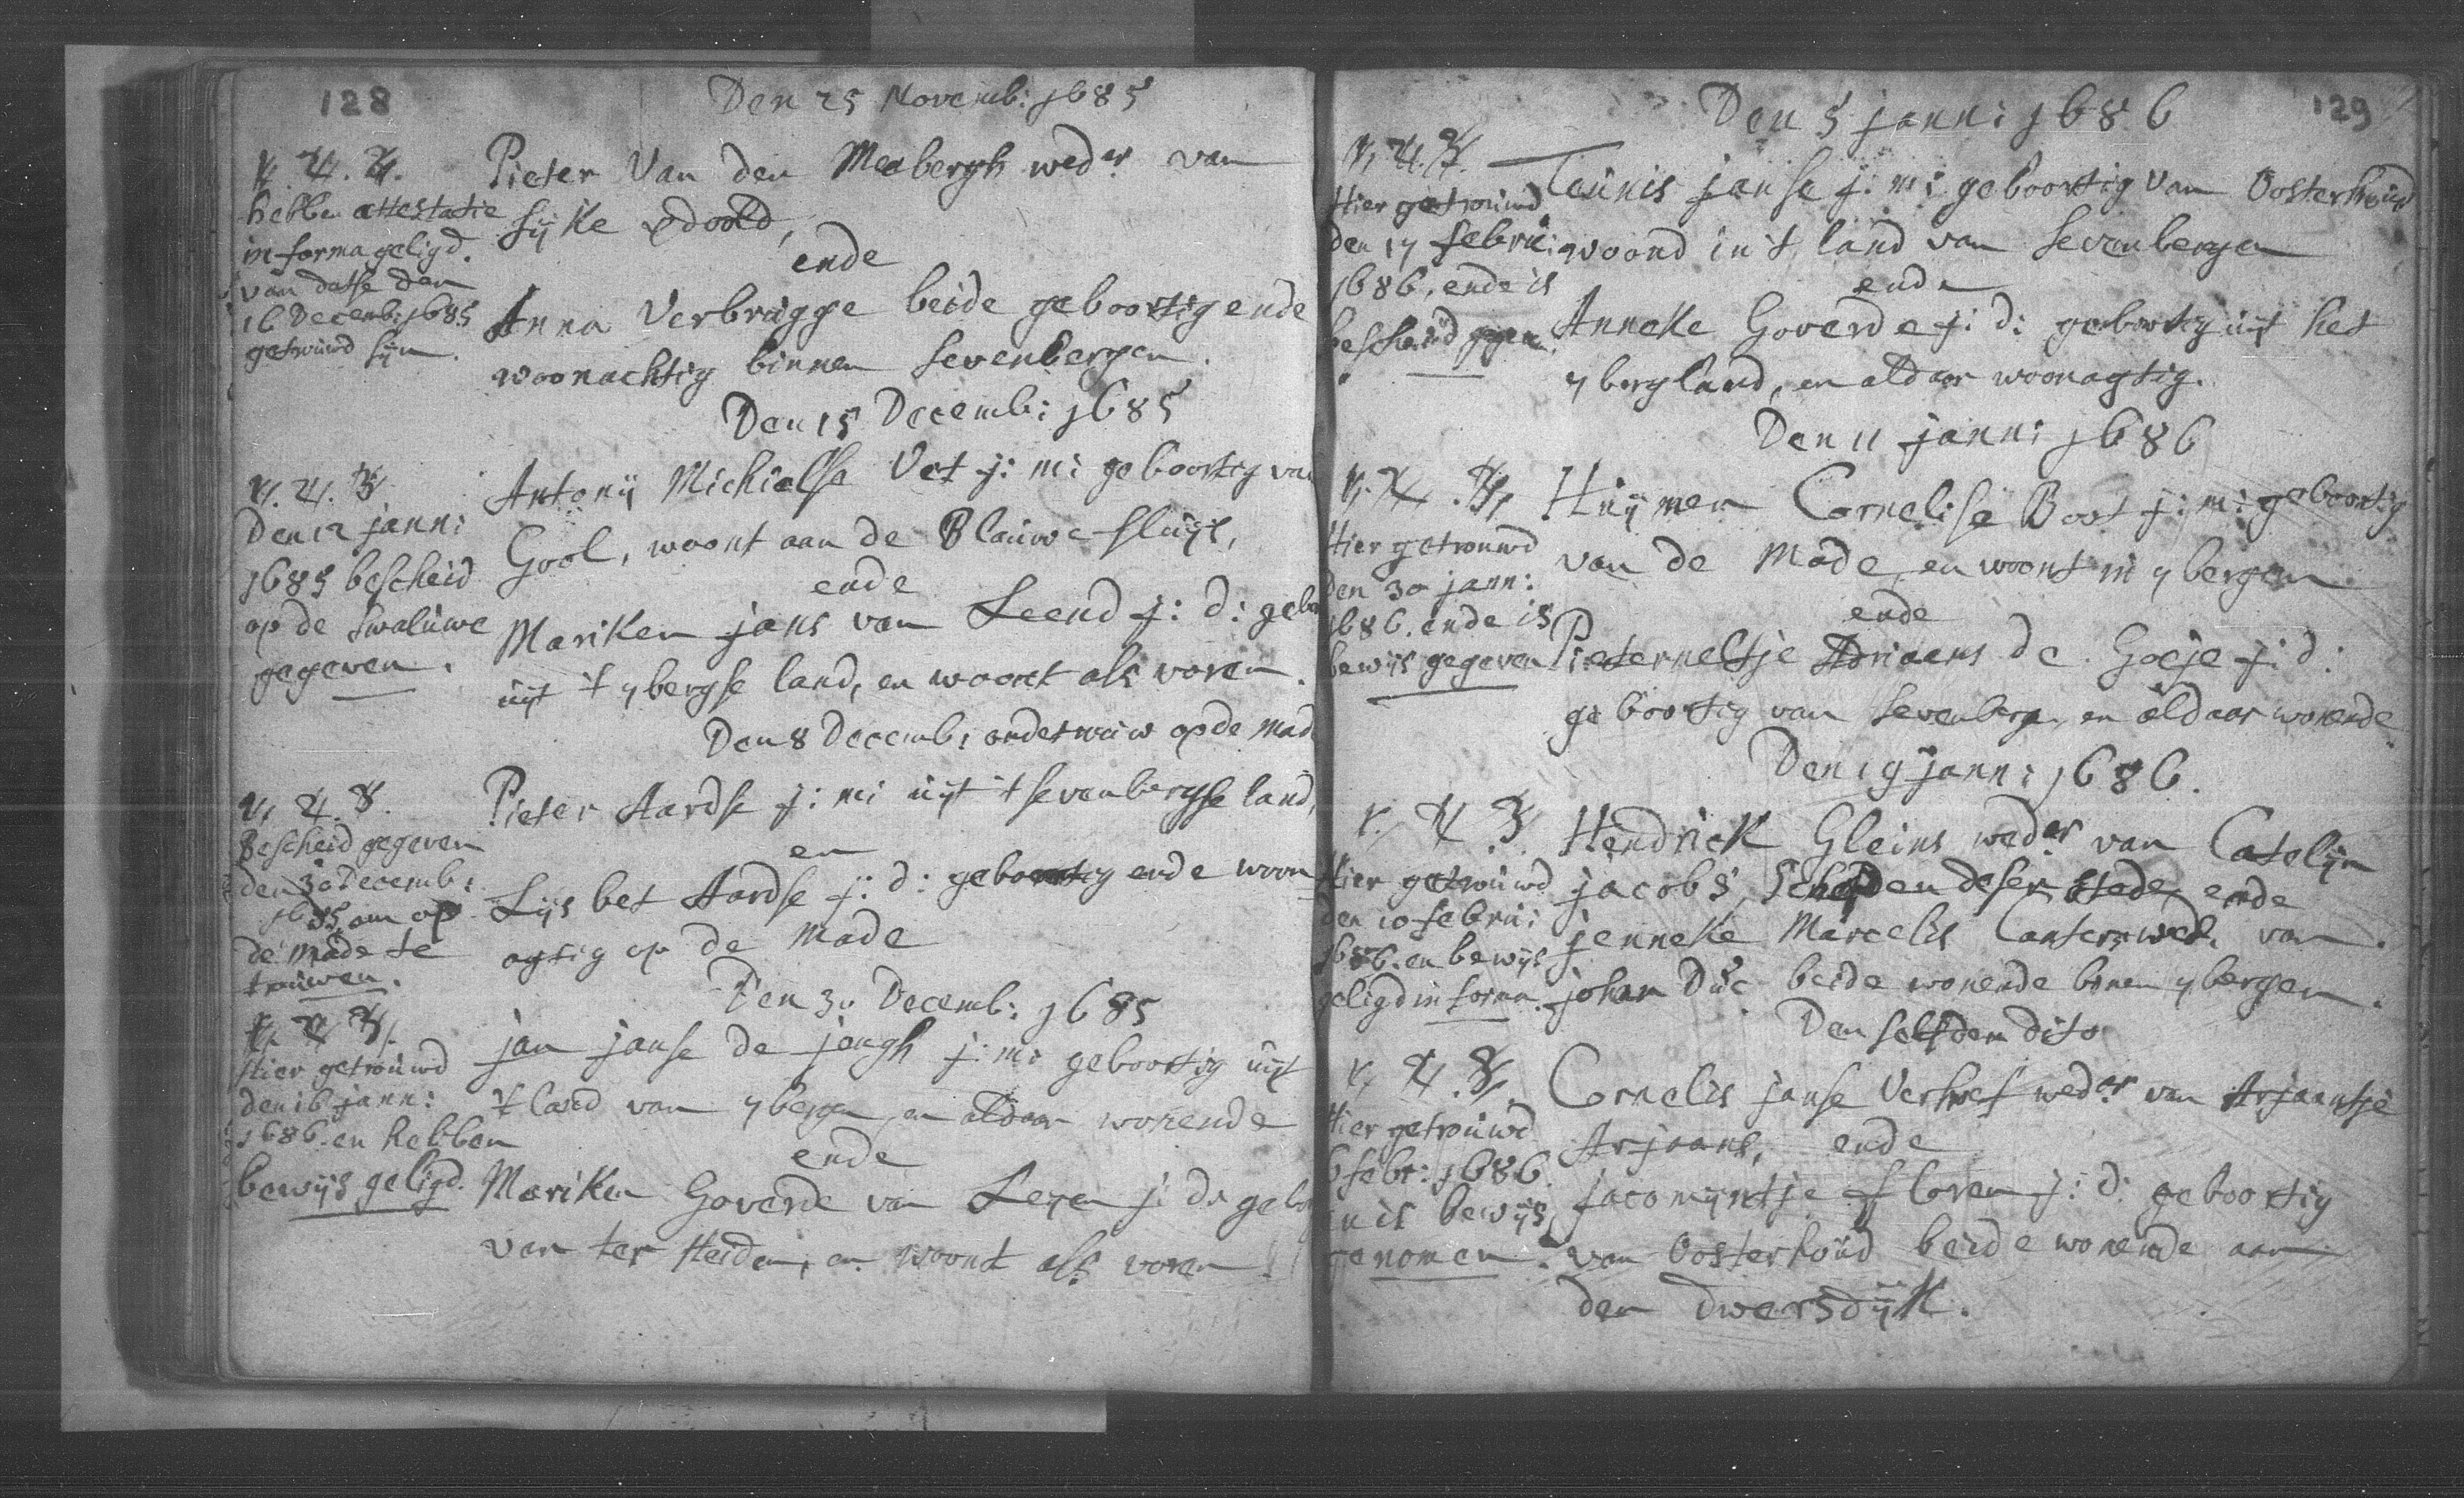 128
Den 25 Novemb: 1685
Pieter Van den Meebergh wed.r van
Sijke
ende
Anna Verbrugge beide geboortig ende
woonachtig binnen Sevenbergen.
hebben attestatie
in forma geligd.
van datse den
16 Decemb: 1685
getrouwd sijn.
Den 15 Decemb: 1685
Antonij Michielse Vet j: m: geboortig van
Gool, woont aan de Blauwe sluijs,
ende
Mariken jans van Leend j: d: gebo
uijt 't 7bergse land, en woont als voren.
Den 12 jann:
1685 bescheid
op de Swaluwe
gegeven.
Den 8 Decemb: ondertrouw op de Made
Pieter Aardse j: m: uijt 't sevenbergse land,
en
Lijsbet Aardse j: d: geboortig ende woon
agtig op de Made
Bescheid gegeven
den 30 Decemb:
1685, om op
de Made te
trouwen.
Den 30 Decemb: 1685
jan janse de jongh j: m: geboortig uijt
't land van 7bergen, en aldaar wonende
ende
Mariken Goverde van Leijen j: d: gebo
van ter Heiden, en woont als voren.
Hier getrouwd
den 16 jann:
1686. en hebben
bewijs geligd.
129
Den 5 jann: 1686
Teunis janse j: m: geboortig van Oosterhoud
woond in 't land van Sevenbergen
ende
Anneke Goverde j: d: geboortig uijt het
7bergland, en aldaar woonagtig.
Hier getrouwd
den 17 febru:
1686, ende is
bescheid gegeven.
Den 11 jann: 1686
Huijmen Cornelise Boot j: m: geboortig
van de Made, en woont in 7bergen
ende
Pieterneltje Adriaens de Goeje j: d:
geboortig van Sevenbergen, en aldaar wonende
Hier getrouwd
den 30 jann:
1686. ende is
bewijs gegeven
Den 19 jann: 1686.
Hendrick Gleins wed.er van Catelijn
jacobs, Schepen deser stede, ende
jenneke Marcelis wed. van
johan Duc beide wonende binnen 7bergen.
Hier getrouwd
den 10 febru:
1686. en bewijs
geligd in forma.
Den selfden dito
Cornelis janse Verhoef wed.er van Arjaantje
Arjaans, ende
jacomijntje floren j: d: geboortig
van Oosterhoud beide wonende aan
den Dwarsdijk.
Hier getrouwd
6 febr: 1686.
en is bewijs
genomen.